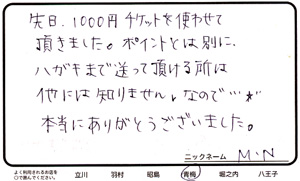 先日、1000円チケットを使わせて
頂きました。ポイントとは別に、
ハガキまで送って頂ける所は
他には知りません。なので…
本当にありがとうございました。
ニックネーム M・N
よく利用されるお店を
○で囲んでください。 立川 羽村 昭島 青梅 堀之内 八王子